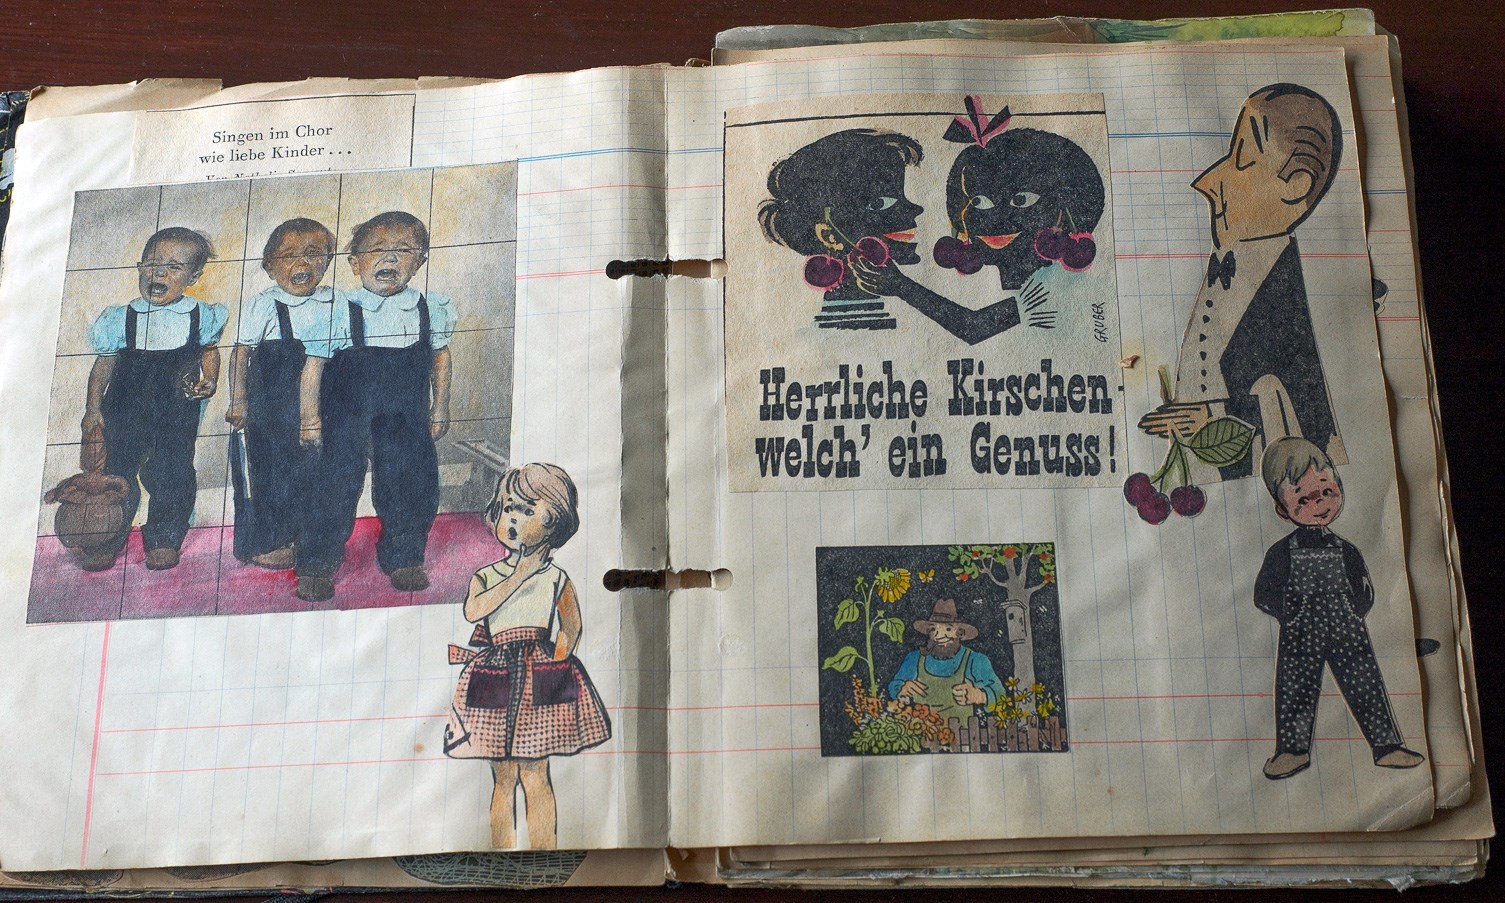 Singen im Chor
wie liebe Kinder...
Herrliche Kirschen-
welch' ein Genuss!
GRUBER